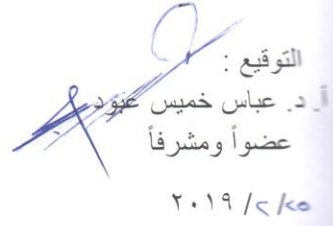 التوقيع :
أ. د. عباس خميس عبود
عضواً ومشرفاً
٢٠١٩ /٢/٢٥